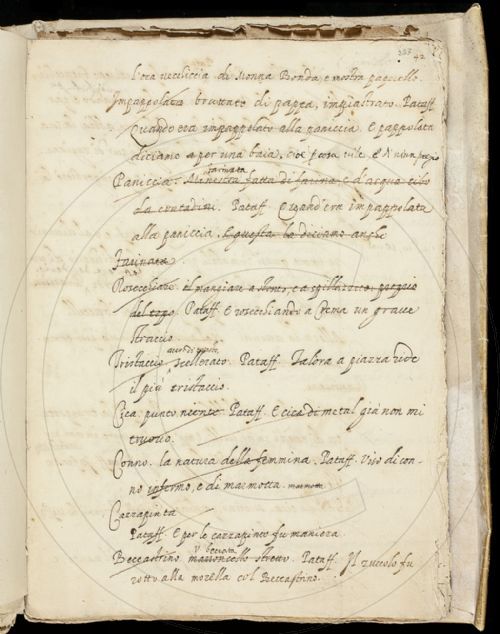 42
l'oca ueceliccia di Monna Bonda, e nostra papocello.
Impappolata brutato di pappa, impiastrato. Pataff.
Quando era impappolato alla paniccia. E pappolata
diciamo a per una baia, cioè cosa uile, e di niun pregio
farinata
Paniccia. Minestra fatta di farina, e d'acqua cibo
da contadini. Pataff. Quand'era impappolata
alla paniccia. E questa la diciamo anche
farinata
Rosecchiare il mangiare a stento, e a spilluzzico, proprio
del topo. Pataff. E rosecchiando a Crema un grasse
straccio.
Tristaccio, scellerato. Pataff. Talora a piazza ride
il più tristaccio.
Cica punto niente Pataff. E cica di metal già non mi
truouo.
Conno. la natura della femmina. Pataff. Viso di con-
no infermo, e di marmotta. marmotta
Cazzapinta
Pataff. E per le cazzapinte fu maniera
V. beccata
Beccastrino marroncello stretto. Pataff. Il zuccolo fu
rotto alla morella col Beccastrino.